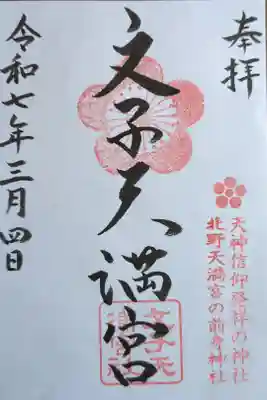 奉拝
天神信仰発祥の神社
北野天満宮の前身神社
文子天満宮
文子天
満宮
令和七年三月四日